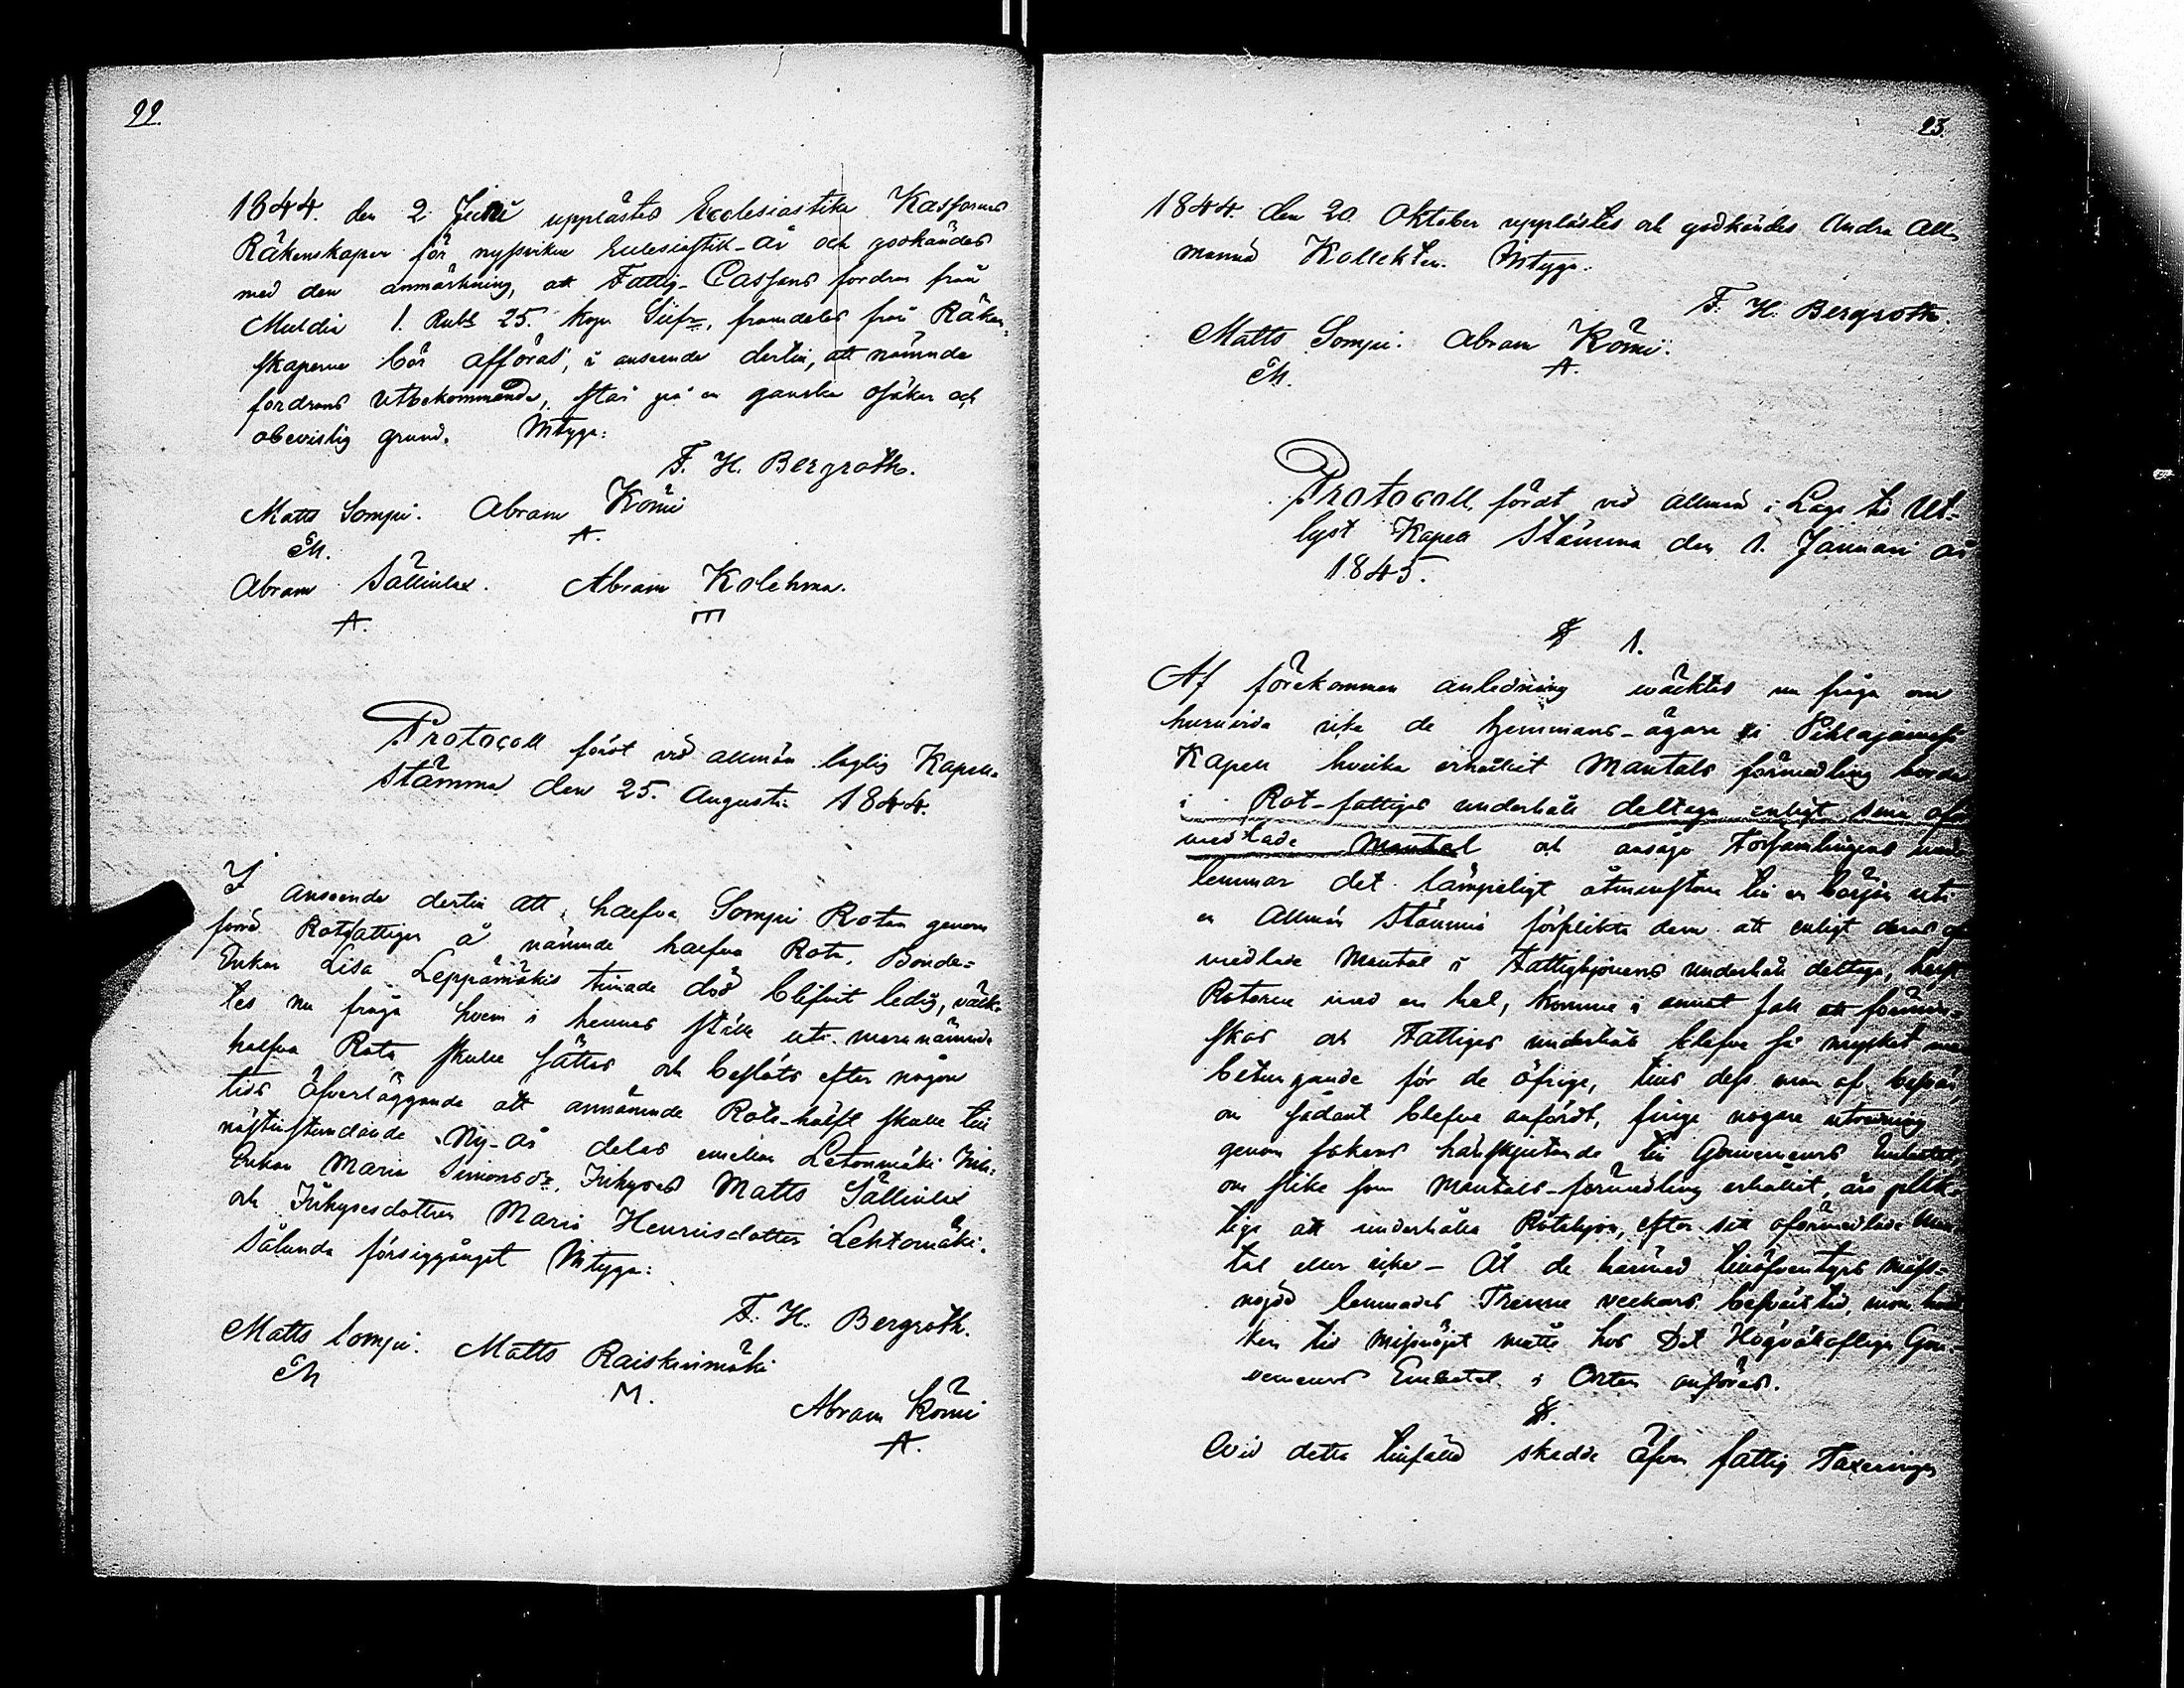 22.
1844. den 2 Junii upplästes Ecclesiastike Kassornes
Räkenskaper för nyssvikne Eclesiastik-År och godkändes
med den anmärkning, att Fattig-Cassans fordran från
Muldia 1. Rub 25. kop. Silfr, framdeles från Räken-
skaperne bör afföras, i anseende dertill, att nämnde
fordrans utbekommande, står på en ganska osäker och
obevislig grund. Intyga:
F. H. Bergroth.
Matts Sompi. Abram Kömi
M. A.
Abram Sällinlax. Abram Kolehma.
A. m
Protocoll fördt vid allmän laglig Kapell
Stämma den 25. Augusti 1844.
I anseende dertill att halfva Sompi Rotan genom
förra Rotfattigen å nämnde halfva Rota, Bonde-
Enkan Lisa Leppämäkis timade död blifvit ledig, väck-
tes nu fråga hvem i hennes ställe uti merenämnde
halfva Rota skulle sättas och beslöts efter någon
tids öfverläggande att annämnde Rote-hälft skulle till
nästinstundande Ny-År delas emellan Letonmäki Inh:
Enkan Maria Simonsdr, Inhyses Matts Sällinlax
och Inhysesdottren Maria Henricsdotter Lehtomäki.
Sålunda försiggånget Intyga:
F. H. Bergroth.
Matts Sompi. Matts Raiskinmäki
M M.
Abram Kömi
A.
23.
1844. den 20. Oktober upplästes och godkändes Andra All-
männa Kollekten. Intyga:
F. H. Bergroth.
Matts Sompi. Abram Kömi.
M. A.
Protocoll, fördt vid allmän i Laga tid Ut-
lyst Kapell Stämma den 1. Januari år
1845.
§ 1.
Af förekommen anledning wäcktes nu fråga om
huruvida icke de hemmans-ägare i Pihlajavesi
Kapell hvilka erhållit Mantals förmedling borde
i Rot-fattiges underhåll deltaga enligt sina oför
medlade Mantal och ansågo Församlingens med-
lemmar det lämpeligt åtminstone till en början uti
en Allmän Stämma förplikta dem att enligt deras of
medlade Mantal i Fattighjonens underhåll deltaga, helst
Rotorne med en hel, komme i annat fall att förmin-
skas och Fattiges underhåll blefve så mycket mer
betungande för de öfrige, tills dess man af besvär,
om sådant blefve anfördt, finge nogare utredning
genom sakens hänskjutande till Gouverneurs Embetet,
om slike som Mantals-förmedling erhållit, äro plik-
tige att underhålla Rotehjon, efter sitt oförmedlade Man
tal eller icke - Åt de härmed till äfventyrs miss-
nöjd lemnades Trenne veckors besvärstid, inom hvil
ken tid missnöjet måtte hos Det Högvälloflige Gou-
verneurs Embetet i Orten anföras.
§.
Wid detta tillfälle skedde äfven fattig Taxeringen